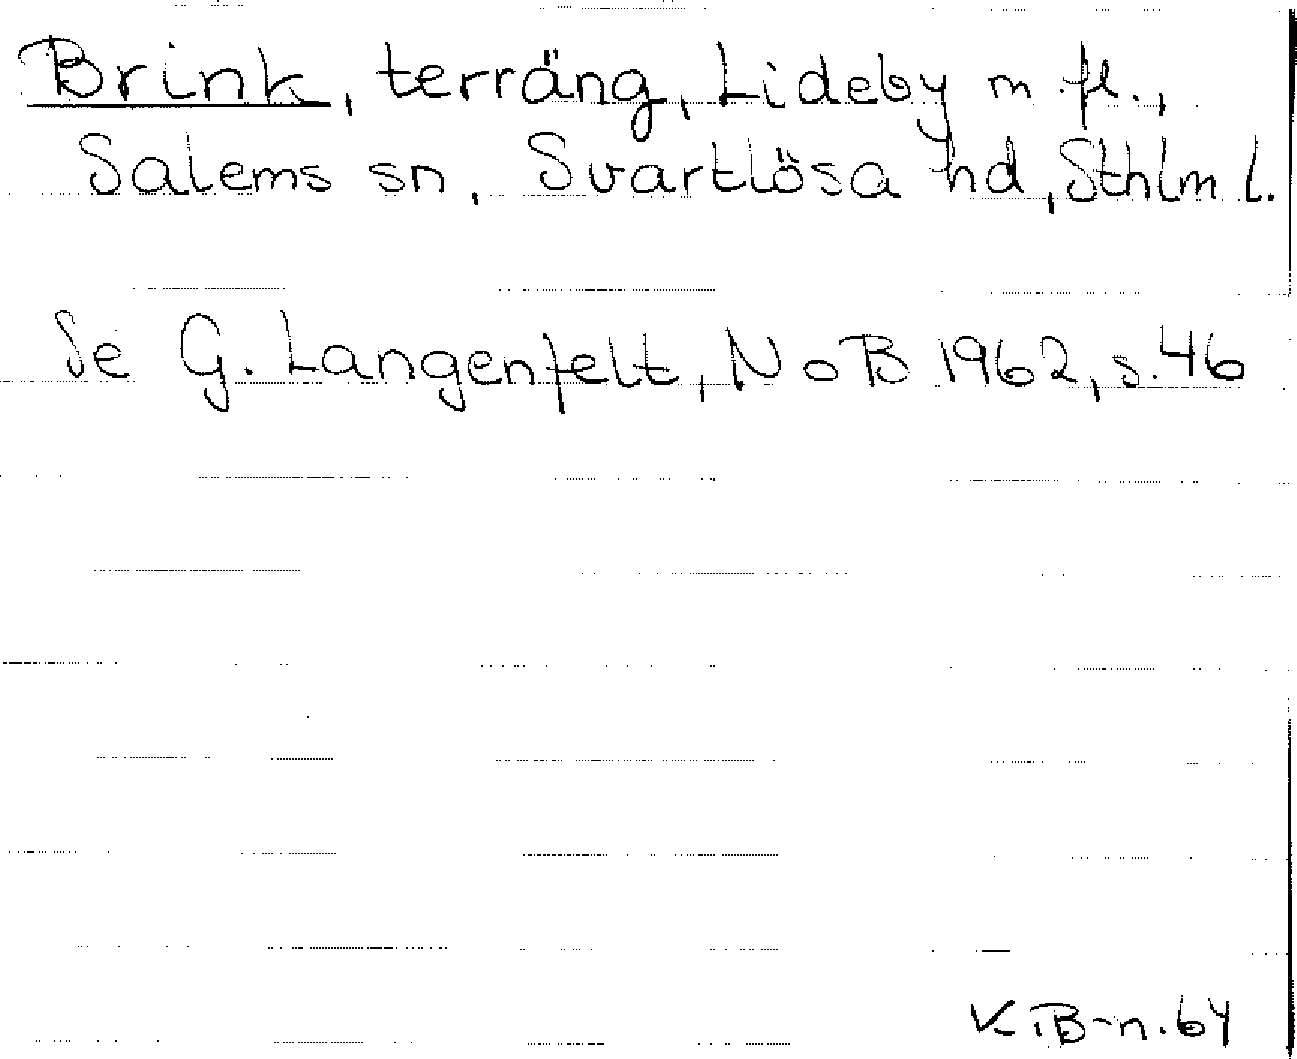 Brink, terräng, Lideby m.fl.,
Salems sn, Svartlösa hd, Sthlm l.
Se G. Langenfelt, NoB 1962, s.46
K.B-n.64